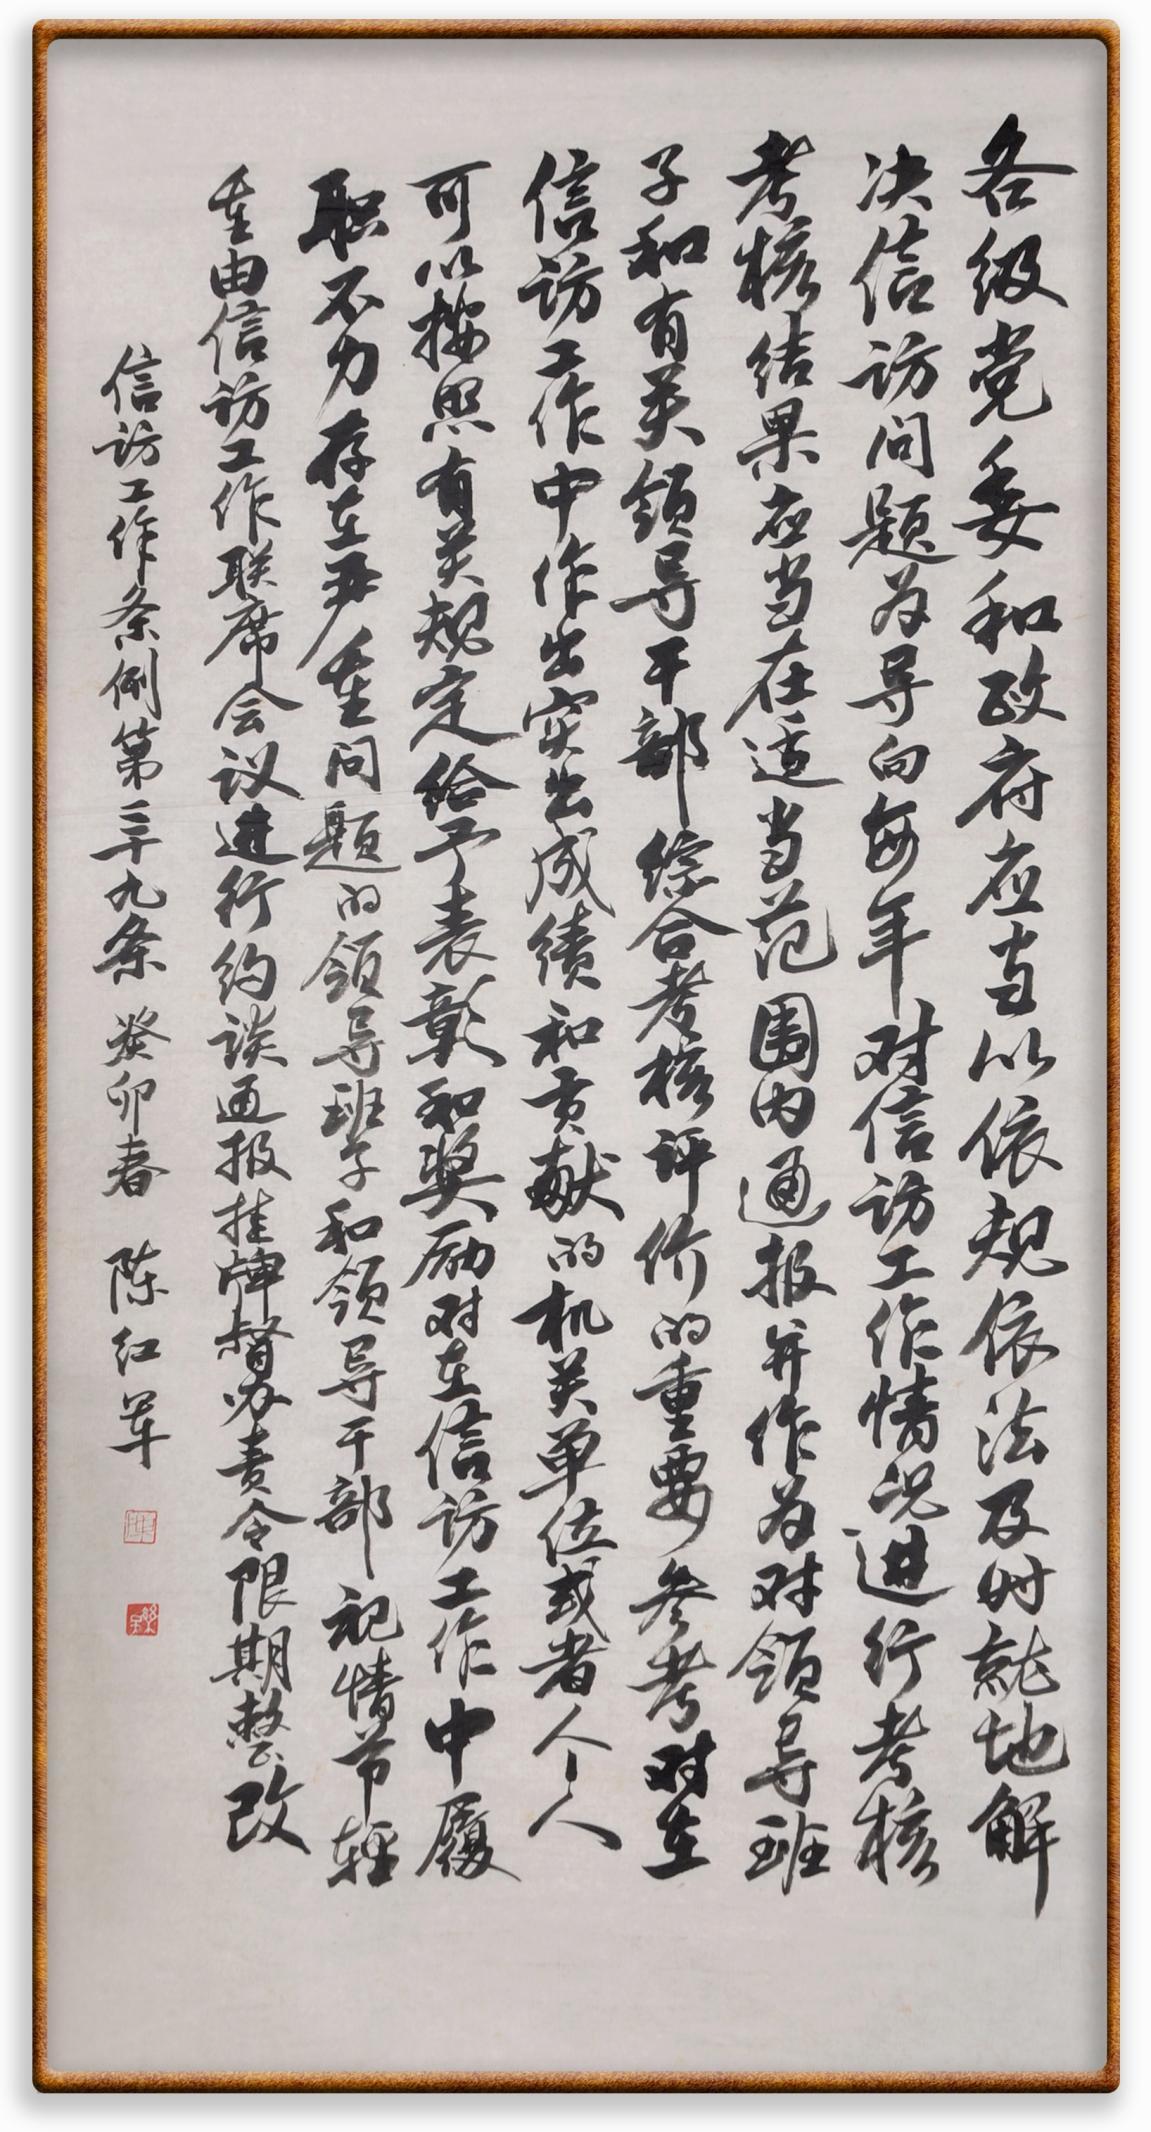 各级党委和政府应当以依规依法及时就地解
决信访问题为导向每年对信访工作情况进行考核
考核结果应当在适当范围内通报并作为对领导班
子和有关领导干部综合考核评价的重要参考对在
信访工作中作出突出成绩和贡献的机关单位或者个人
可以按照有关规定给予表彰和奖励对在信访工作中履
职不力存在严重问题的领导班子和领导干部视情节轻
重由信访工作联席会议进行约谈通报挂牌督办责令限期整改
信访工作条例第三十九条 癸卯春 陈红军